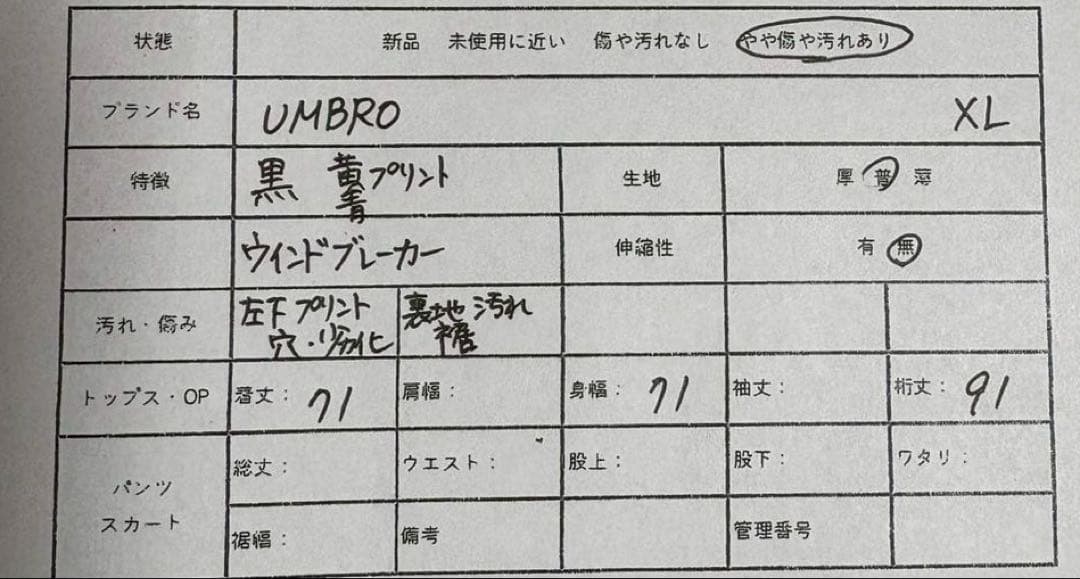 状態 新品 未使用に近い 傷や汚れなし やや傷や汚れあり
ブランド名 UMBRO XL
特徴 黒 黄プリント 生地 厚 普 薄
青
ウインドブレーカー 伸縮性 有 無
汚れ・傷み 左下プリント 裏地汚れ
穴・劣化 裾
トップス・OP 着丈: 71 肩幅: 身幅: 71 袖丈: 裄丈: 91
パンツ 総丈: ウエスト: 股上: 股下: ワタリ:
スカート 裾幅: 備考 管理番号